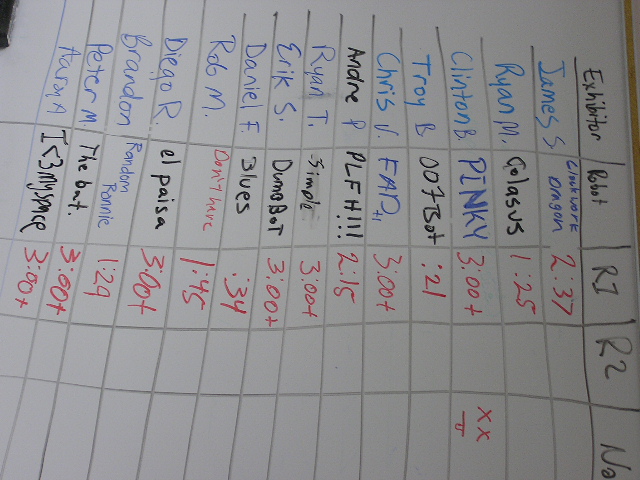 Exhibitor Robot R1 R2 No
James S. Clockwork Dragon 2:37
Ryan M. Colasus 1:25
Clinton B. PINKY 3:00+ XX
Troy B 007Bot :21
Chris V. FAD 3:00+
Andre P PLFH!!! 2:15
Ryan T. Simple 3:00+
Erik S. DumBBot 3:00+
Daniel F. Blues :34
Rob M. Don't have 1:45
Diego R. el paisa 3:00+
Brandon Random Ronnie 1:29
Peter M The bat. 3:00+
Aaron A I<3 Myspace 3:00+